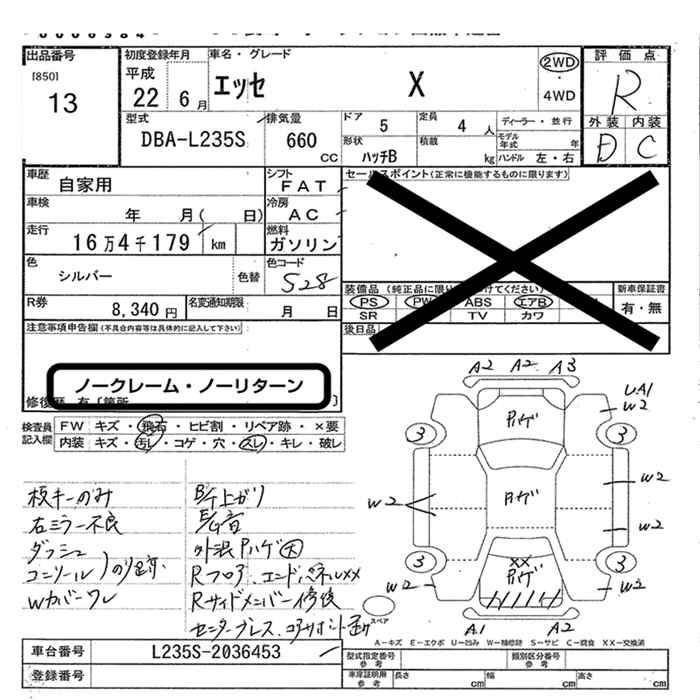 出品番号
[850]
13
初度登録年月
平成
22 6 月
車名・グレード
エッセ X
2WD
・
4WD
評価点
R
外装 内装
D C
型式
DBA-L235S
排気量
660
CC
ドア 5
定員 4 人
形状 ハッチB
積載 kg
ディーラー・並行
モデル年式 年
ハンドル 左・右
車歴
自家用
シフト
FAT
車検
年 月( 日)
冷房
AC
走行
16万4千179 km
燃料
ガソリン
色
シルバー
色替
色コード
S28
R券
8,340 円
名変通知期限
月 日
セールスポイント(正常に機能するものに限ります)
装備品 (純正品に限り
けてください)
PS PW ABS エアB
SR TV カワ
新車保証書
有・無
後日品
注意事項申告欄(不具合内容等は具体的に記入して下さい)
ノークレーム・ノーリターン
検査員
記入欄
FW キズ・飛石・ヒビ割・リペア跡・×要
内装 キズ・汚レ・コゲ・穴・スレ・キレ・破レ
板キーのみ
右ミラー不良
ダッシュ
コンソール)のり跡
Wカバーワレ
B/下上ガリ
E/G音
外装Pハゲ大
Rフロア、エンドパネルXX
Rサイドメンバー修復
センターブレス、コアサポート歪み
A2 A2 A3
UA1
W2
Pハゲ
3 3
W2
W2
Pハゲ
W2
3 3
XX
Pハゲ
W2
W3
A1 A2
スペア
A-キズ E-エクボ U-凹み W-補修跡 S-サビ C-腐食 XX-交換済
車台番号
L235S-2036453
登録番号
型式指定番号
参考
類別区分番号
参考
車庫証明用
参考
長さ cm
幅 cm
高さ cm